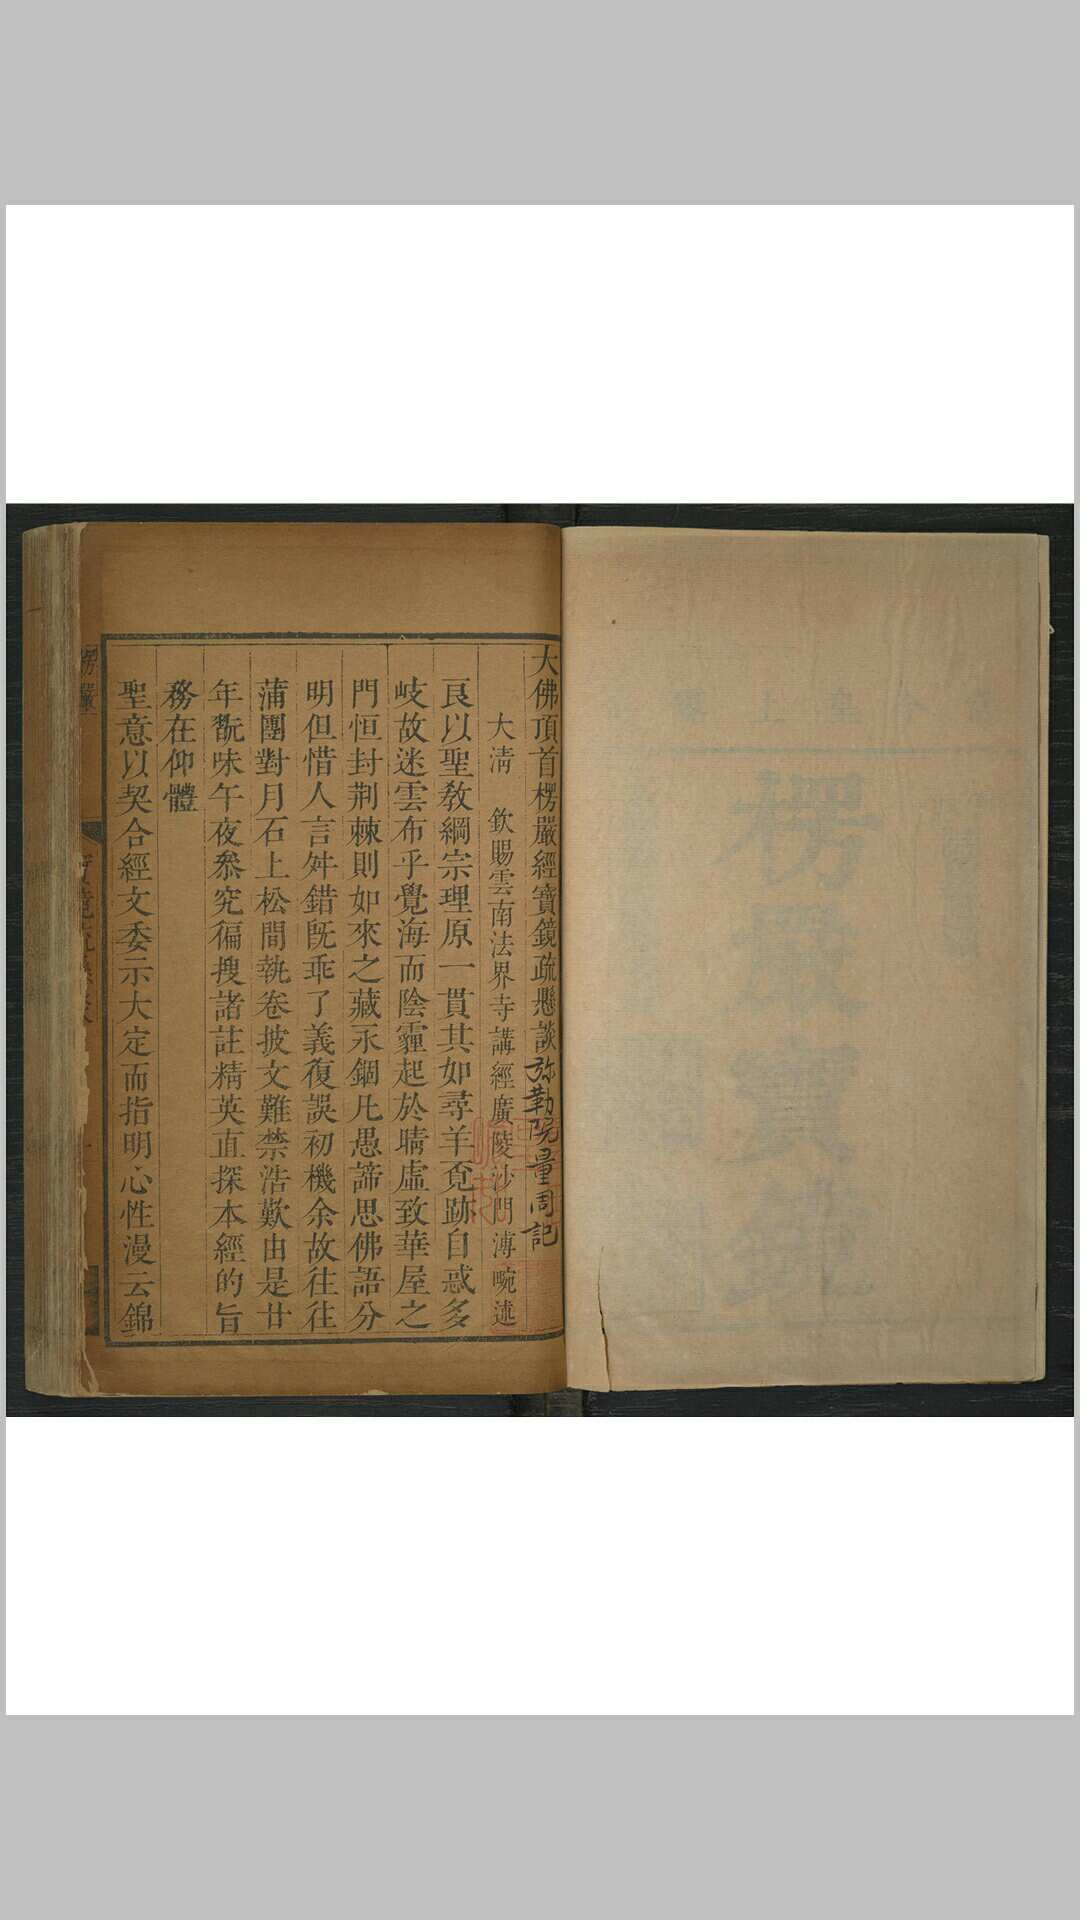 大佛頂首楞嚴經寶鏡疏懸談弥勒院量周記
大清 欽賜雲南法界寺講經廣陵沙門溥畹述
良以聖教綱宗理原一貫其如尋羊覔跡自惑多
岐故迷雲布乎覺海而陰霾起於晴虛致華屋之
門恒封荆棘則如來之藏永錮凡愚諦思佛語分
明但惜人言舛錯旣乖了義復誤初機余故往往
蒲團對月石上松間執卷披文難禁浩歎由是廿
年翫味午夜叅究徧搜諸註精英直探本經的旨
務在仰體
聖意以契合經文委示大定而指明心性漫云錦